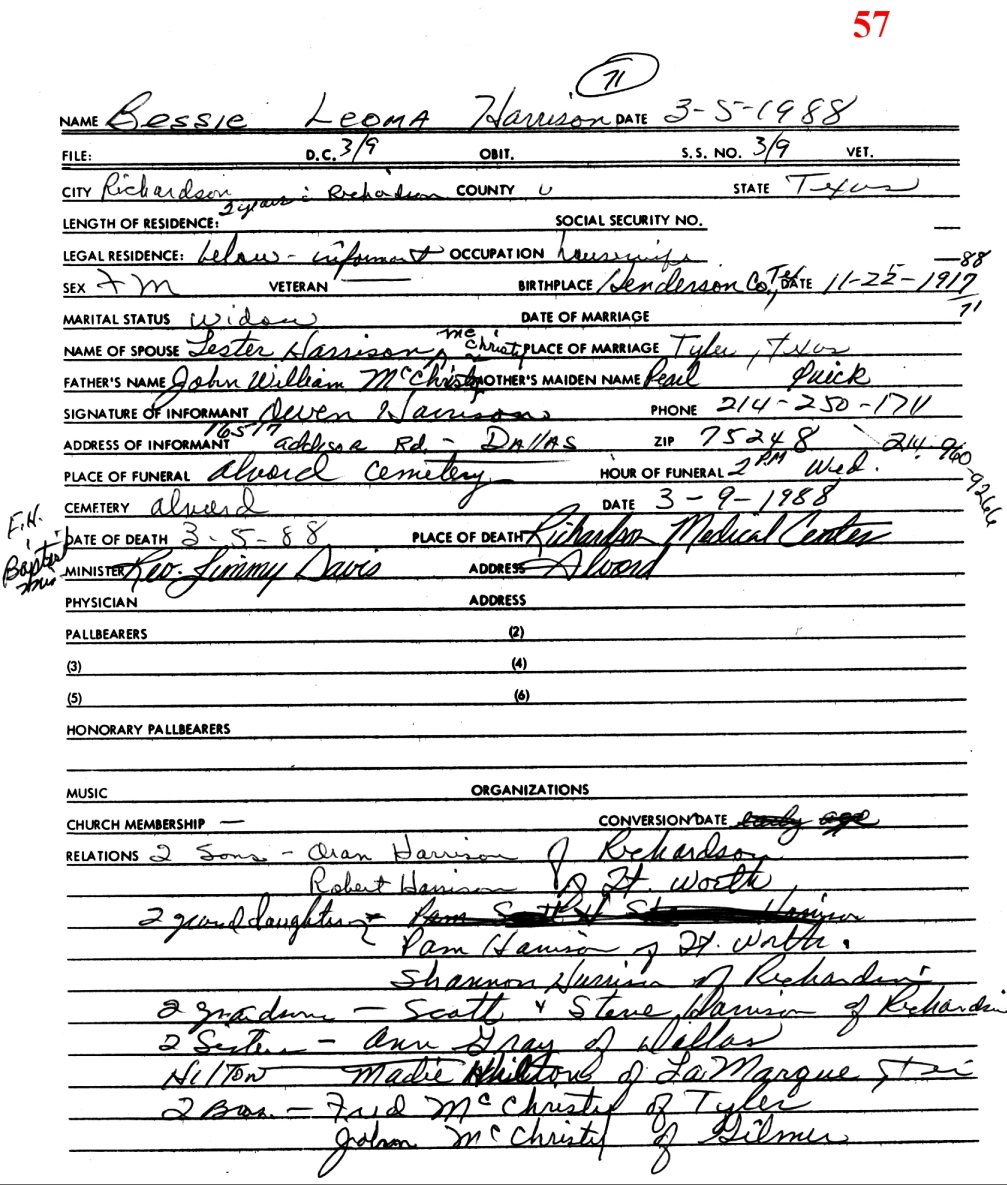 57
71
NAME Bessie Leoma Harrison DATE 3-5-1988
FILE: D.C. 3/9 OBIT. S.S. NO. 3/9 VET.
CITY Richardson 2 years in Richardson COUNTY STATE Texas
LENGTH OF RESIDENCE: SOCIAL SECURITY NO. —
LEGAL RESIDENCE: below - informant OCCUPATION housewife —88
SEX F M VETERAN — BIRTHPLACE Henderson Co., Tex DATE 11-22-1917
71
MARITAL STATUS widow DATE OF MARRIAGE
NAME OF SPOUSE Lester Harrison McChristy PLACE OF MARRIAGE Tyler, Texas
FATHER'S NAME John William McChristy MOTHER'S MAIDEN NAME Pearl Quick
SIGNATURE OF INFORMANT Harrison PHONE 214-250-1711
ADDRESS OF INFORMANT 16517 addison Rd. - DAllAS ZIP 75248 214-960-9266
PLACE OF FUNERAL alvord cemetery HOUR OF FUNERAL 2 PM Wed.
CEMETERY alvord DATE 3-9-1988
F.H. Baptist
DATE OF DEATH 3-5-88 PLACE OF DEATH Richardson Medical Center
MINISTER Rev. Jimmy Davis ADDRESS Alvord
PHYSICIAN ADDRESS
PALLBEARERS (2)
(3) (4)
(5) (6)
HONORARY PALLBEARERS
MUSIC ORGANIZATIONS
CHURCH MEMBERSHIP — CONVERSION DATE early age
RELATIONS 2 Sons - Oran Harrison of Richardson
Robert Harrison of Ft. Worth
2 granddaughters - Pam Harrison
Pam Harrison of Ft. Worth.
Shannon Harrison of Richardson
2 grandsons - Scott & Steve Harrison of Richardson
2 Sisters - Ann Gray of Dallas
HilTon Madie of LaMarque, Tx
2 Bros. - Fred McChristy of Tyler
McChristy of Gilmer